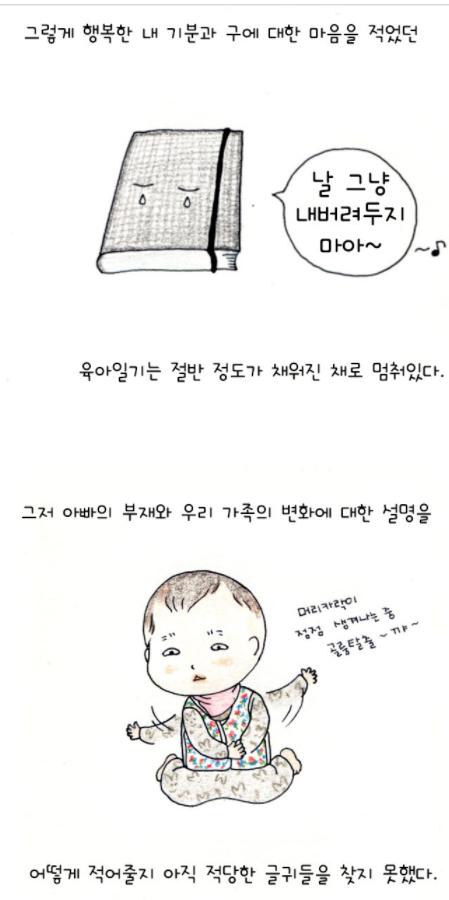 그렇게 행복한 내 기분과 구에 대한 마음을 적었던
날 그냥
내버려두지
마아~
~♪
육아일기는 절반 정도가 채워진 채로 멈춰있다.
그저 아빠의 부재와 우리 가족의 변화에 대한 설명을
머리카락이
점점 생겨나는 중
골룸탈출~ 꺄~
어떻게 적어줄지 아직 적당한 글귀들을 찾지 못했다.